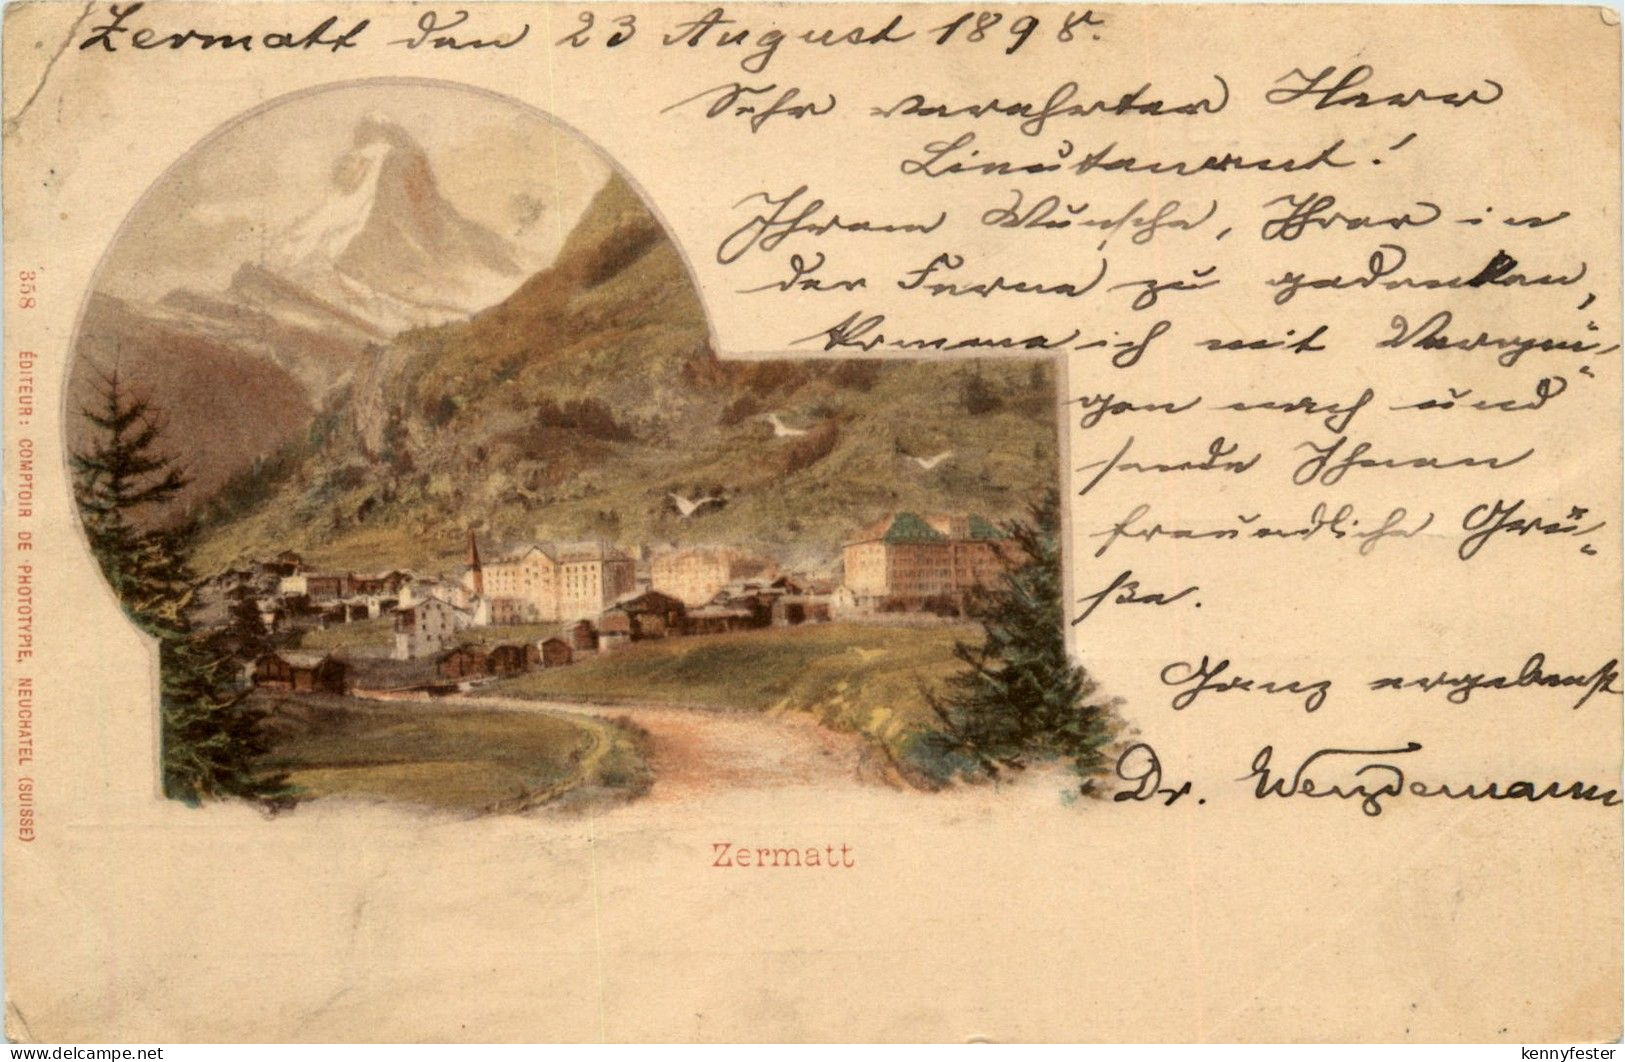 Zermatt den 23 August 1898.
Sehr verehrter Herr
Lieutenant!
Ihrem Wunsche, Ihrer in
der Ferne zu gedenken,
komme ich mit Vergnü-
gen nach und
sende Ihnen
freundliche Grü-
ße.
Ganz ergebenst
Dr.
358 ÉDITEUR: COMPTOIR DE PHOTOTYPIE, NEUCHATEL (SUISSE)
Zermatt
delcampe.net
kennyfester